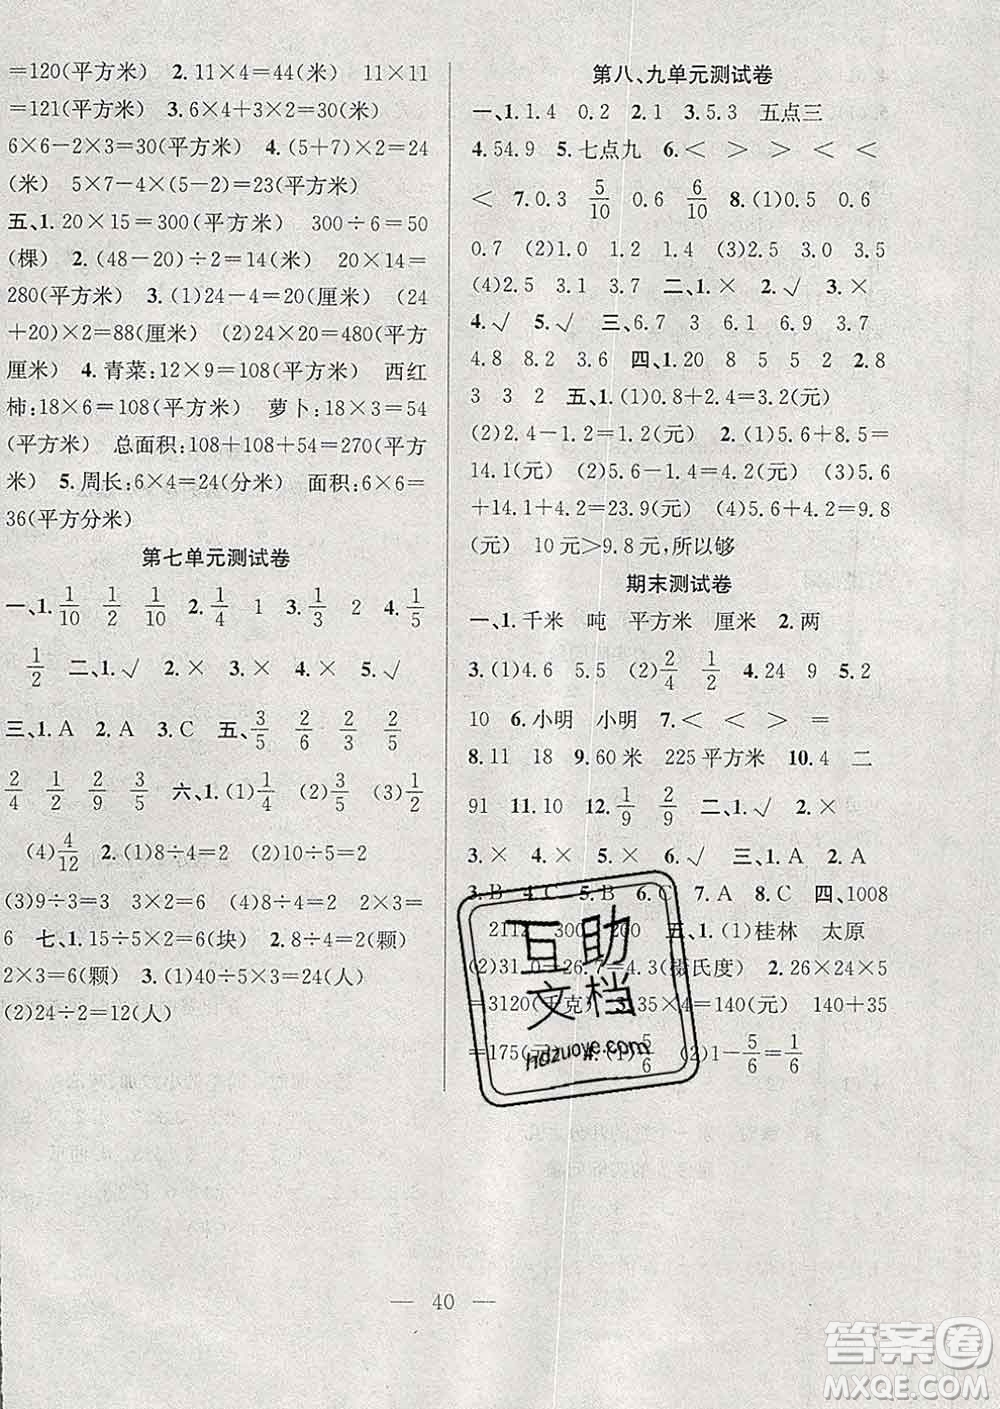 =120(平方米) 2.11×4=44(米) 11×11
=121(平方米) 3.6×4+3×2=30(米)
6×6-2×3=30(平方米) 4.(5+7)×2=24
(米) 5×7-4×(5-2)=23(平方米)
五、1.20×15=300(平方米) 300÷6=50
(棵) 2.(48-20)÷2=14(米) 20×14=
280(平方米) 3.(1)24-4=20(厘米) (24
+20)×2=88(厘米) (2)24×20=480(平方
厘米) 4.青菜:12×9=108(平方米) 西红
柿:18×6=108(平方米) 萝卜:18×3=54
(平方米) 总面积:108+108+54=270(平方
米) 5.周长:6×4=24(分米) 面积:6×6=
36(平方分米)
第七单元测试卷
一、1.1/10 1/2 1/10 2.1/4 1 3.1/2 2 4.1/5
1/2 二、1.√ 2.× 3.× 4.× 5.√
三、1.A 2.A 3.C 五、3/5 2/6 2/5
2/4 1/2 3/5 六、1.(1)1/4 (2)3/4 (3)1/4
(4)4/12 2.(1)8÷4=2 (2)8÷4=2
(3)9÷3=3 2×3=6 (4)8÷4=2 2×3=
6 七、1.15÷5×2=6(块) 2.8÷4=2(颗)
2×3=6(颗) 3.(1)40÷5×3=24(人)
(2)24÷2=12(人)
第八、九单元测试卷
一、1.1.4 0.2 2.1 3.5.3 五点三
4.54.9 5.七点九 6.< > > < <
< 7.0.3 5/10 0.6 6/10 8.(1)0.5 0.6
0.7 (2)1.0 1.2 1.4 (3)2.5 3.0 3.5
(4)2.5 3.1 3.4 二、1.× 2.√ 3.×
4.√ 5.√ 三、6.7 3 6.1 3.9 3.7
4.8 2.8 3.6 四、1.20 8 5 5 2.8
3 3 2 五、1.(1)0.8+2.4=3.2(元)
(2)2.4-1.2=1.2(元) 2.(1)5.6+8.5=
14.1(元) (2)5.6-1.2=4.4(元) (3)5.6
+4.2+5.6+8.5=23.9(元) (4)5.6+4.2=9.8
(元) 10元>9.8元,所以够
期末测试卷
一、1.千米 吨 平方米 厘米 2.两
3.(1)4.6 5.5 (2)2/4 1/2 4.24 9 5.2
10 6.小明 小明 7.< < > =
8.11 18 9.60米 225平方米 10.4 二
91 11.10 12.1/9 2/9 二、1.√ 2.×
3.× 4.× 5.√ 三、1.A 2.A
3.B 4.C 5.B 6.C 7.A 8.C 四、1008
2112 300 200 五、1.(1)桂林 太原
(2)31.0-26.7=4.3(摄氏度) 2.26×24×5
=3120(千克) 3.35×4=140(元) 140+35
=175(元) 4.(1)5/6 (2)1-5/6=1/6
互助
文档
hdzuoye.com
— 40 —
答案圈
MXQE.COM